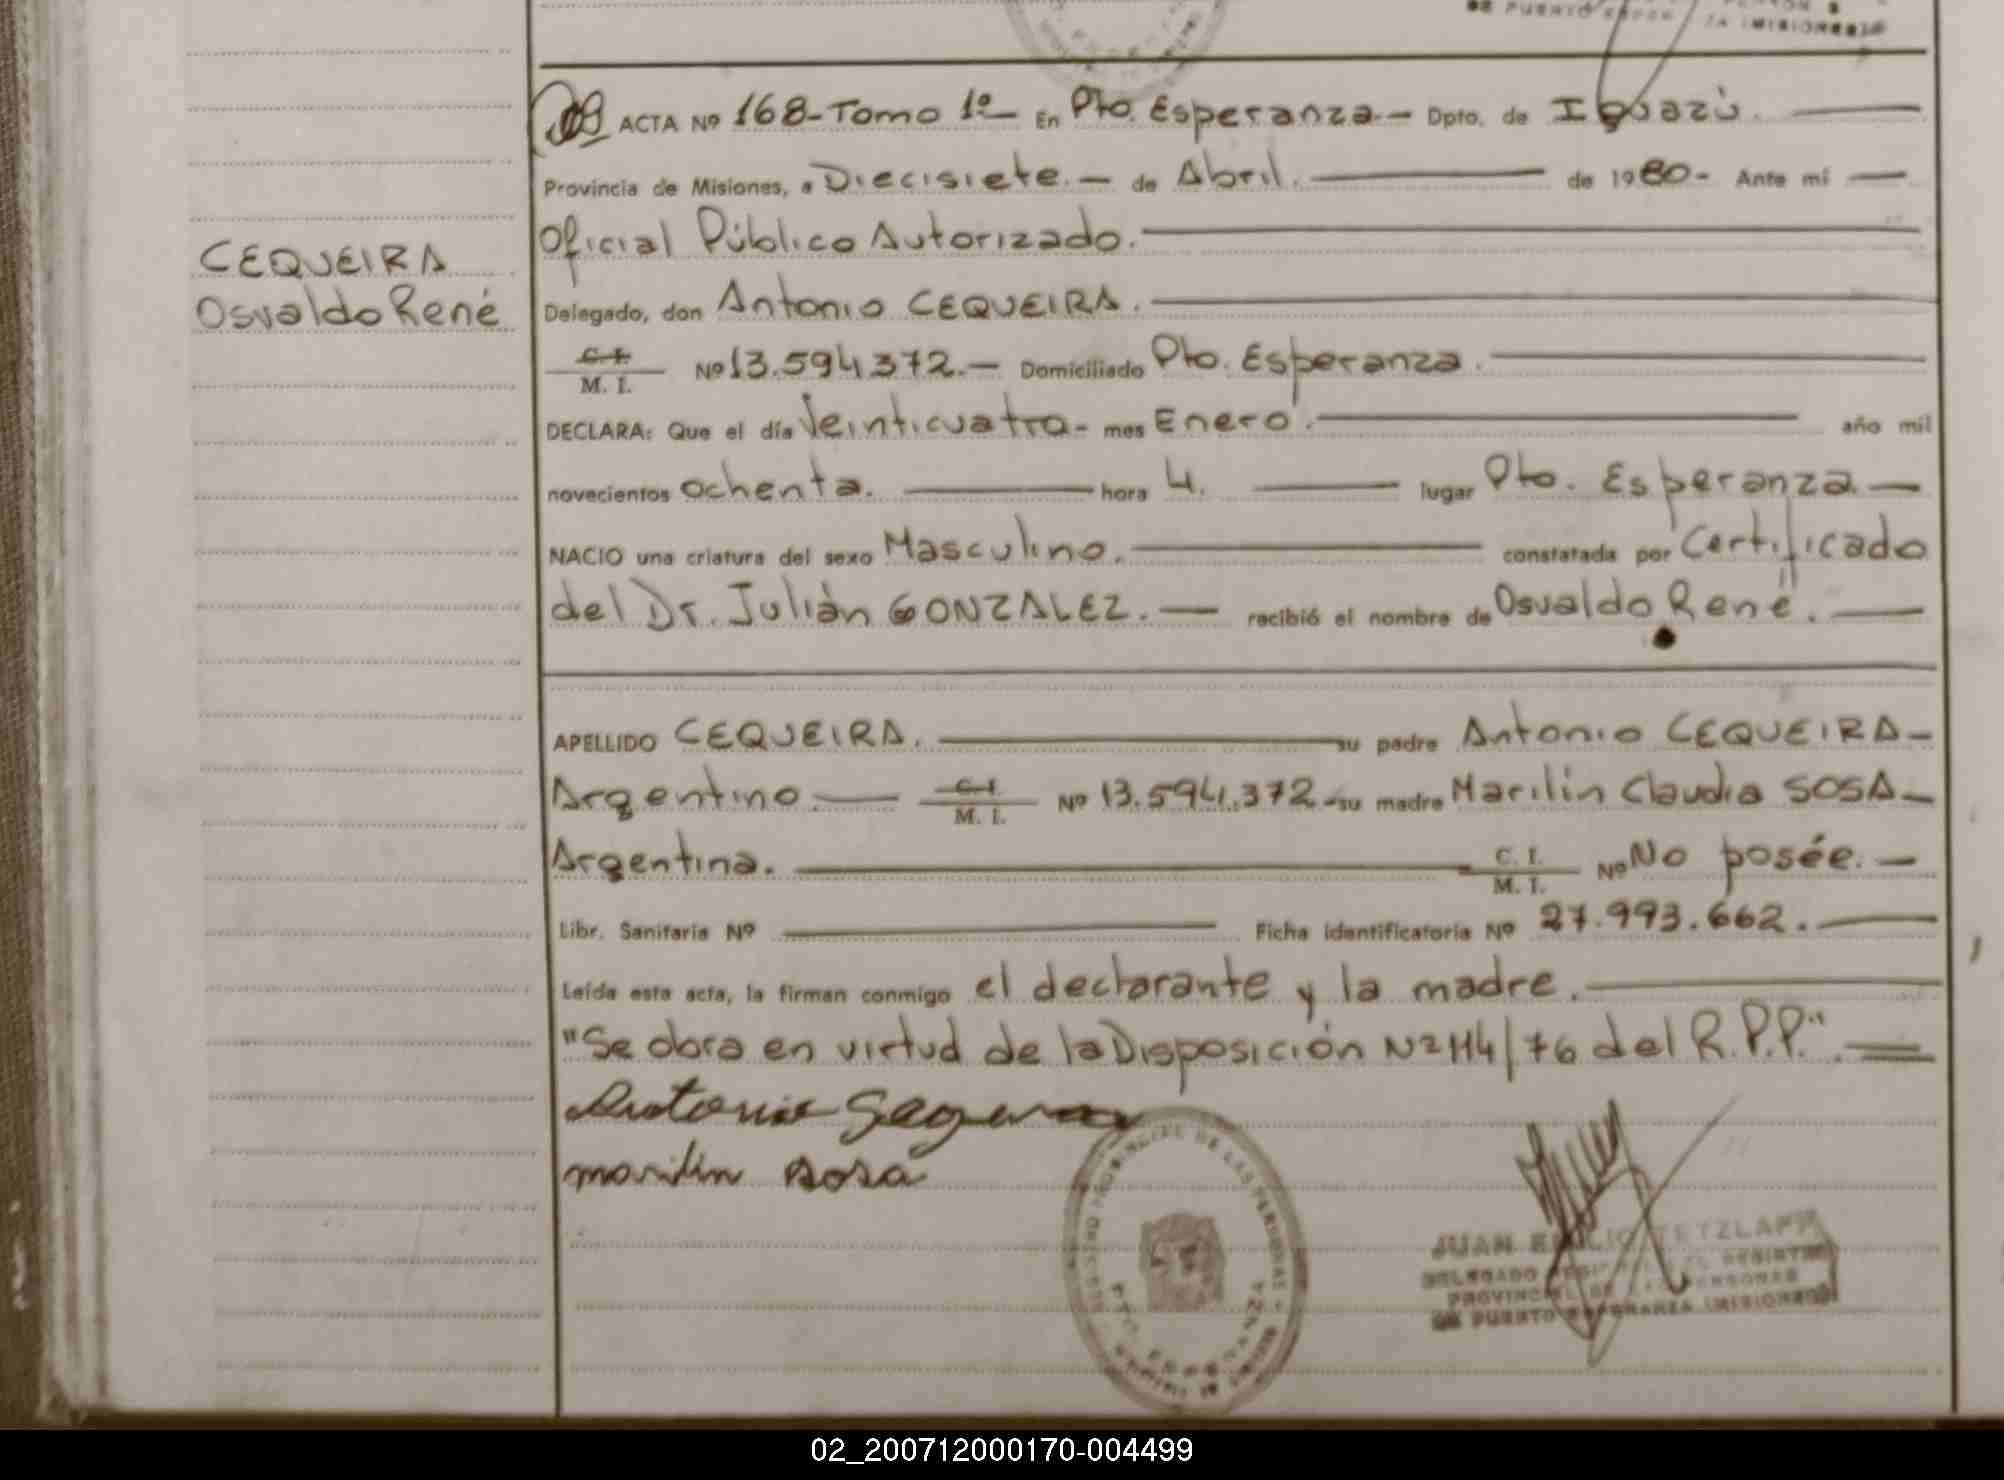 DE PUERTO
ACTA Nº 168-Tomo 1º- En Pto. Esperanza.- Dpto. de Iguazú.
Provincia de Misiones, a Diecisiete.- de Abril. de 1980- Ante mí
Oficial Público Autorizado.
CEQUEIRA
Osvaldo René
Delegado, don Antonio CEQUEIRA.
C. I.
M. I. Nº 13.594.372.- Domiciliado Pto. Esperanza.
DECLARA: Que el día Veinticuatro- mes Enero. año mil
novecientos ochenta. hora 4. lugar Pto. Esperanza.-
NACIO una criatura del sexo Masculino. constatada por Certificado
del Dr. Julián GONZALEZ.- recibió el nombre de Osvaldo René.
APELLIDO CEQUEIRA. su padre Antonio CEQUEIRA-
Argentino.- C. I.
M. I. Nº 13.594.372-su madre Marilin Claudia SOSA-
Argentina. C. I.
M. I. Nº No posée.-
Libr. Sanitaria Nº Ficha identificatoria Nº 27.993.662.
Leída esta acta, la firman conmigo el declarante y la madre.
"Se obra en virtud de la Disposición Nº 114/76 del R.P.P."
Antonio
marilin sosa
JUAN EMILIO TETZLAFF
DELEGADO
PROVINCIAL DE LAS PERSONAS
DE PUERTO ESPERANZA (MISIONES)
02_200712000170-004499